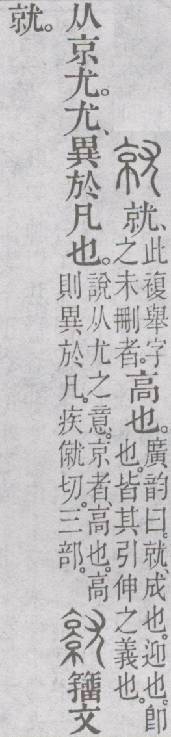 就、此複舉字之未刪者。高也。廣韵曰。就、成也。迎也。卽也。皆其引伸之義也。
从京尤。尤、異於凡也。說从尤之意。京者高也。高則異於凡。疾僦切。三部。籒文
就。